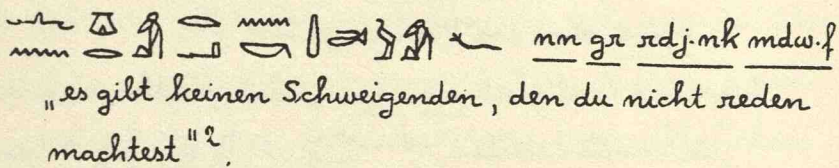 𓂜𓈖𓎼𓂋𓀁𓂋𓂞𓈖𓎡𓌃𓂧𓀁𓆑 nn gr rdj·nk mdw·f
„es gibt keinen Schweigenden, den du nicht reden
machtest"².